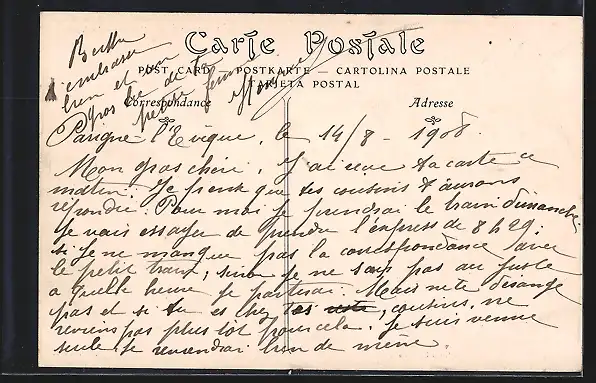 Berthe
t'embrasse
bien et un
gros bec de ta
petite femme
Carte Postale
POST CARD — POSTKARTE — CARTOLINA POSTALE
TARJETA POSTAL
Correspondance
Adresse
Parigné l'Evêque, le 14/8 - 1908.
Mon gros chéri, J'ai reçu ta carte ce
matin. Je pense que tes cousins t'auront
répondu. Pour moi je prendrai le train dimanche,
je vais essayer de prendre l'express de 8h29;
si je ne manque pas la correspondance avec
le petit train, sinon je ne sais pas au juste
à quelle heure je partirai. Mais ne te dérange
pas et si tu es chez tes cousins, ne
reviens pas plus tôt pour cela. Je suis venue
seule je reviendrai bien de même.